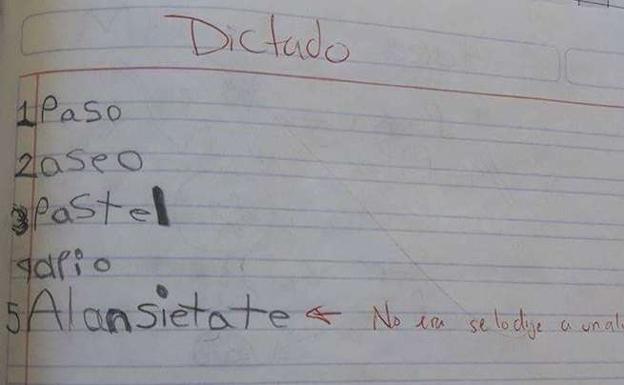 Dictado
1 Paso
2 aseo
3 Pastel
4 apio
5 Alansietate ← No era se lo dije a un al